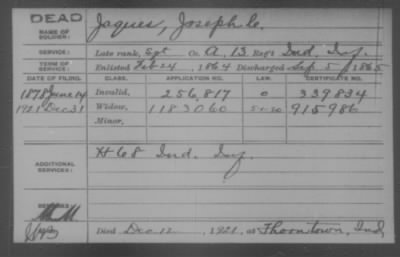 DEAD
NAME OF SOLDIER: Jaques, Joseph C.
SERVICE: Late rank, Sgt Co. A, 13 Reg't Ind. Inf.
TERM OF SERVICE: Enlisted Feb 24, 1864 Discharged Sep. 5, 1865
DATE OF FILING. CLASS. APPLICATION NO. LAW. CERTIFICATE NO.
1878 June 14 Invalid, 256,817 0 339834
1921 Dec 31 Widow, 1183060 5-1-20 915986
Minor,
ADDITIONAL SERVICES: H 68 Ind. Inf.
REMARKS:
Died Dec 12, 1921, at Thorntown, Ind